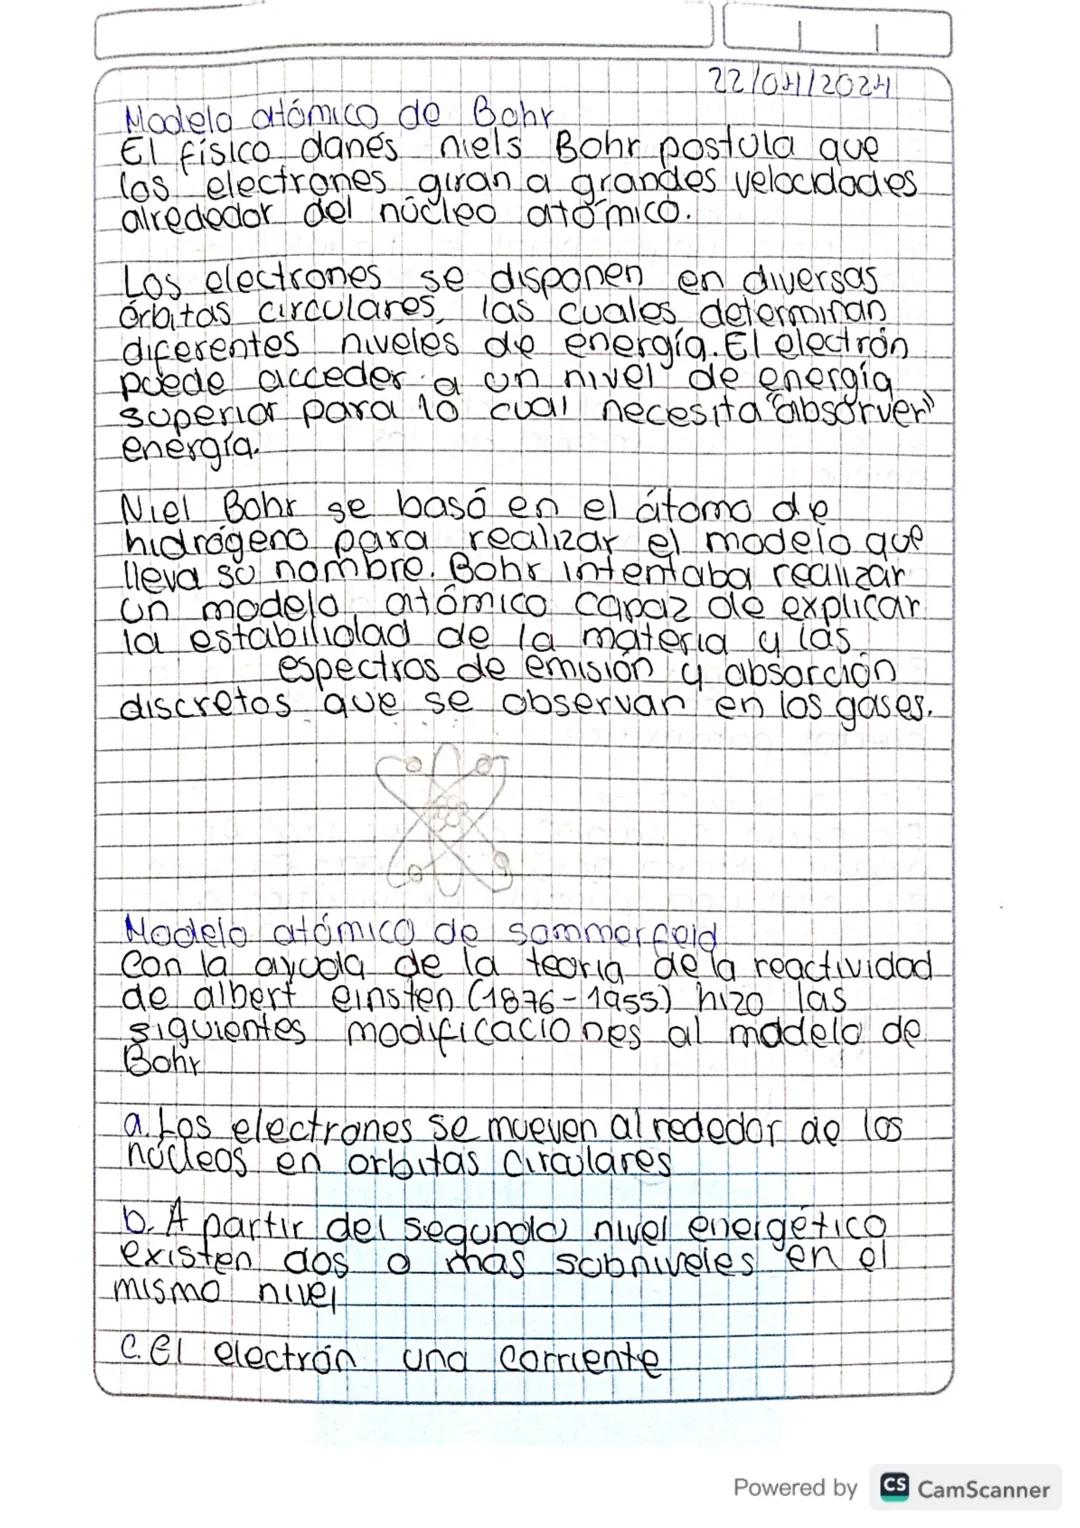 22/04/2024
Modelo atómico de Bohr
El físico danés niels Bohr postula que
los electrones giran a grandes velocidades
alrededor del núcleo atómico.
Los electrones se disponen en diversas
órbitas circulares, las cuales determinan
diferentes niveles de energía. El electrón
puede acceder a un nivel de energía
superior para lo cual necesita "absorver"
energía.
Niel Bohr se basó en el átomo de
hidrógeno para realizar el modelo que
lleva su nombre. Bohr intentaba realizar
un modelo atómico capaz de explicar
la estabilidad de la materia y las
espectros de emisión y absorción
discretos que se observan en los gases.
Modelo atómico de sommerfeld
Con la ayuda de la teoria de la reactividad
de albert einsten (1876-1955) hizo las
siguientes modificaciones al modelo de
Bohr
a. Los electrones se mueven alrededor de los
núcleos en orbitas circulares
b. A partir del segundo nivel energético
existen dos o mas subniveles en el
mismo nivel
c. El electrón una corriente
Powered by CS CamScanner